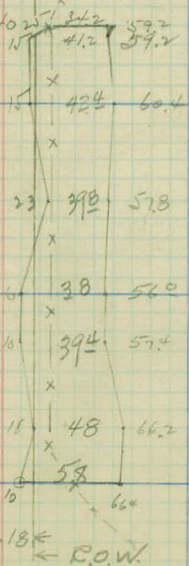 34.2 59.2
15 41.2 59.2
15 42 4 60.4
23 39 8 57.8
38 56 0
10 39 4 57.4
18 48 66.2
10 58 66 4
18 ←
← R.O.W.